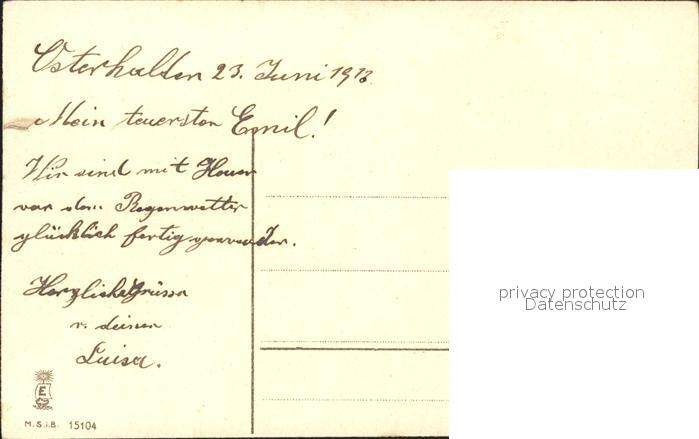 Osterhalden 23. Juni 1913.
Mein teuersten Emil!
Wir sind mit Heuen
vor dem Regenwetter
glücklich fertig geworden.
Herzliche Grüsse
v. deiner
Luisa.
E
M.S.i.B. 15104
privacy protection
Datenschutz